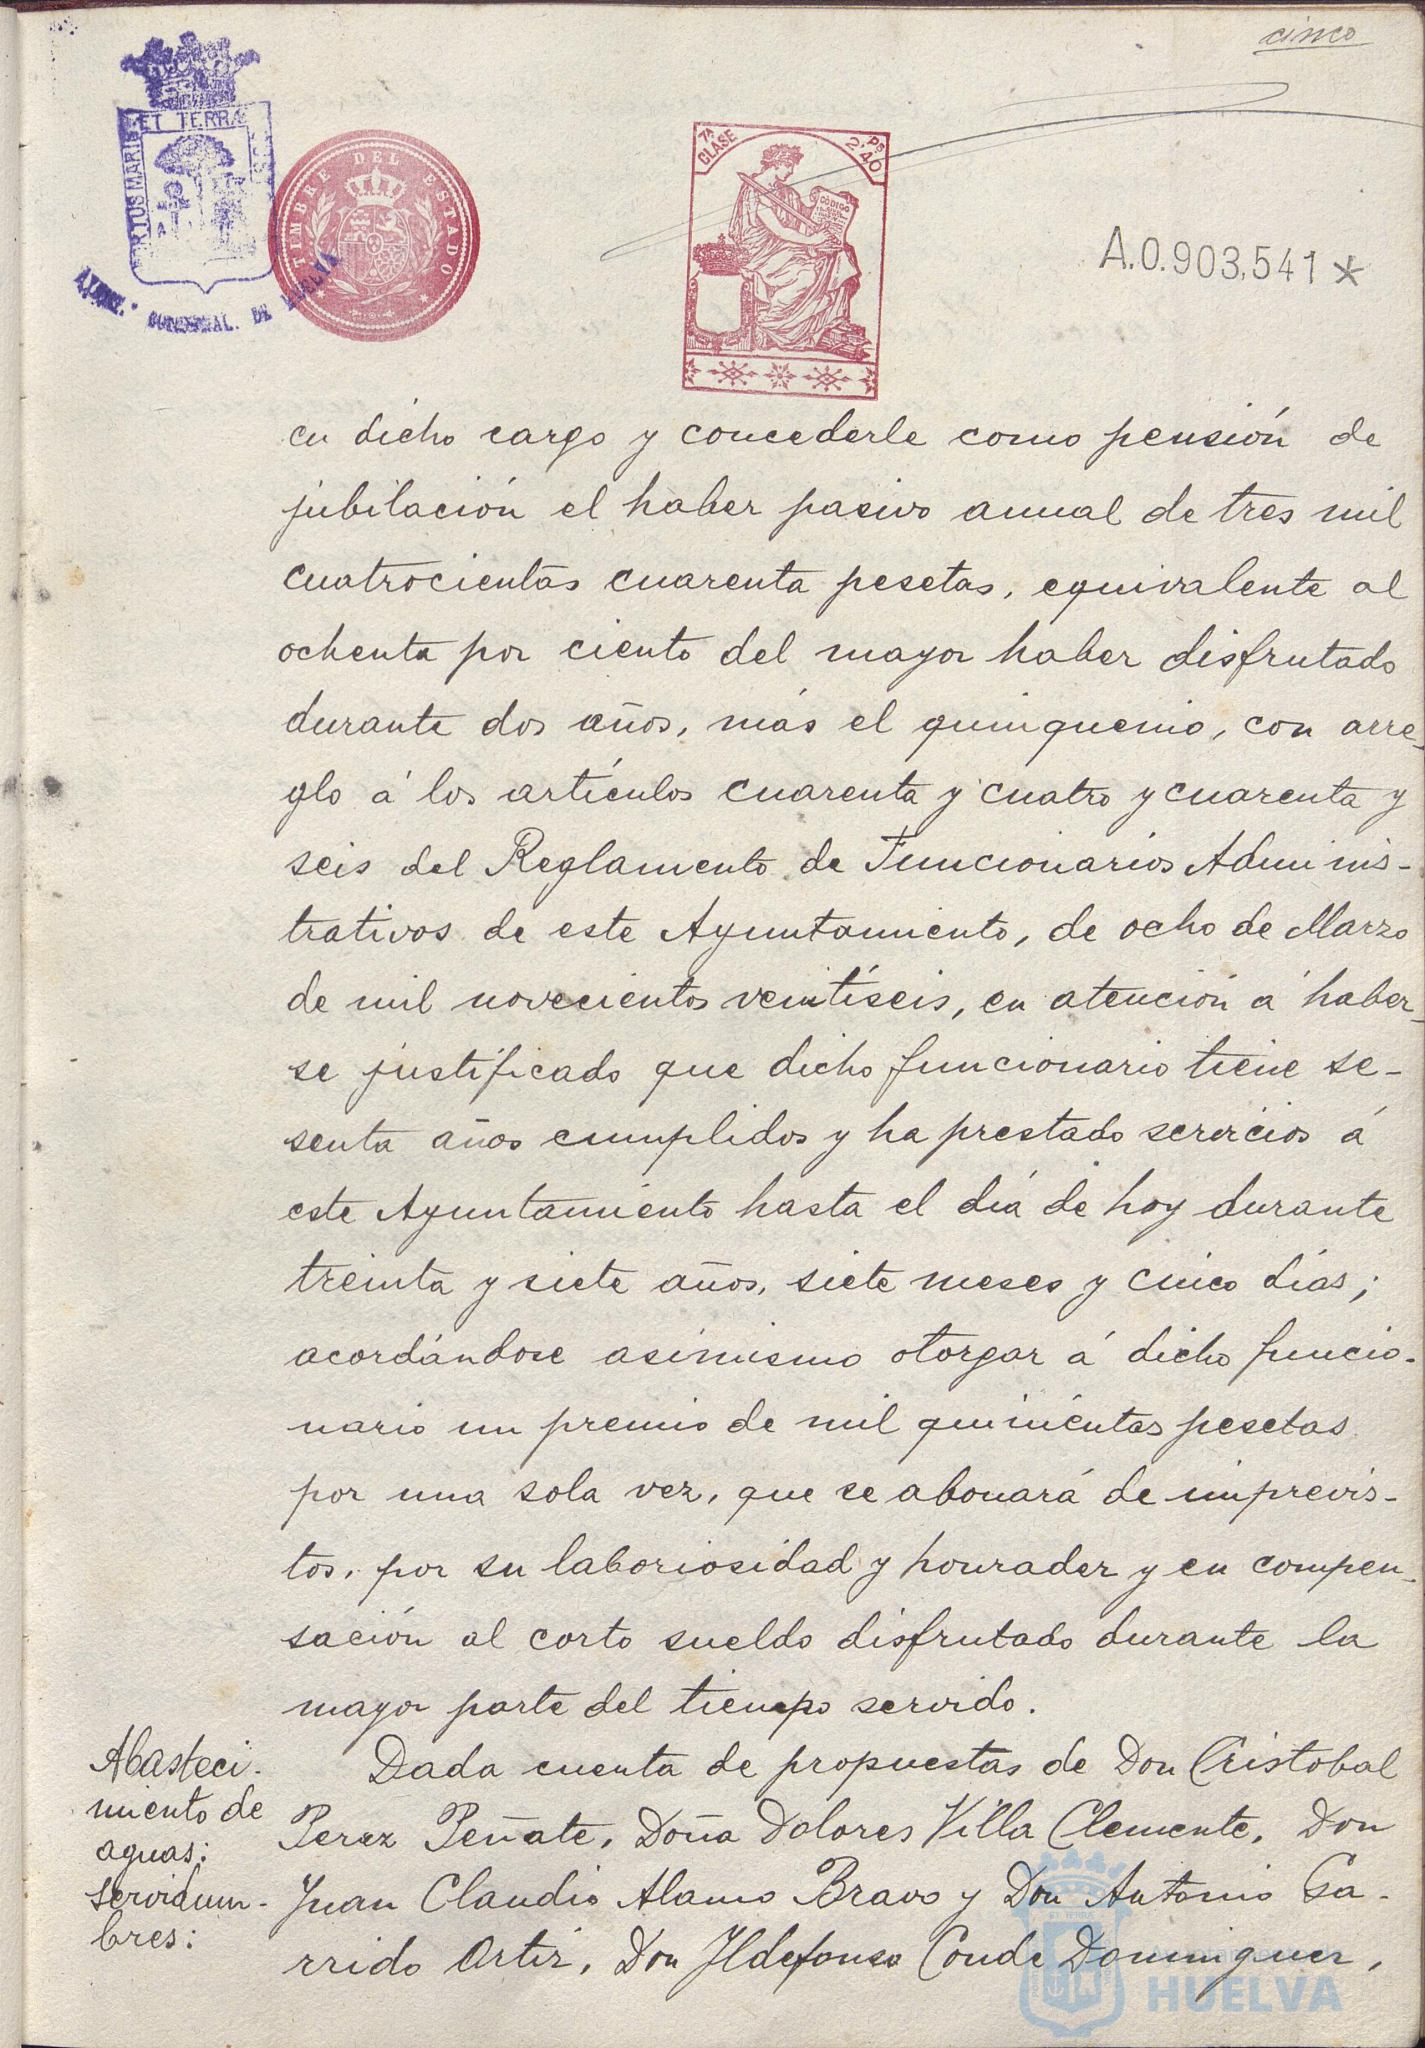 cinco
ET TERRÆ
PORTUS MARIS
DE HUELVA
TIMBRE DEL ESTADO
7ª CLASE
Pts 2'40
CODIGO
A.0.903,541*
en dicho cargo y concederle como pensión de
jubilación el haber pasivo anual de tres mil
cuatrocientas cuarenta pesetas, equivalente al
ochenta por ciento del mayor haber disfrutado
durante dos años, más el quinquenio, con arre-
glo á los artículos cuarenta y cuatro y cuarenta y
seis del Reglamento de Funcionarios Adminis-
trativos de este Ayuntamiento, de ocho de Marzo
de mil novecientos veintiseis, en atención á haber-
se justificado que dicho funcionario tiene se-
senta años cumplidos y ha prestado servicios á
este Ayuntamiento hasta el día de hoy durante
treinta y siete años, siete meses y cinco días;
acordándose asimismo otorgar á dicho funcio-
nario un premio de mil quinientas pesetas
por una sola vez, que se abonará de imprevis-
tos, por su laboriosidad y honradez y en compen-
sación al corto sueldo disfrutado durante la
mayor parte del tiempo servido.
Abasteci-
miento de
aguas:
servidum-
bres:
Dada cuenta de propuestas de Don Cristobal
Perez Peñate, Doña Dolores Villa Clemente, Don
Juan Claudio Alamo Bravo y Don Antonio Ga-
rrido Ortiz, Don Ildefonso Conde Dominguez,
HUELVA